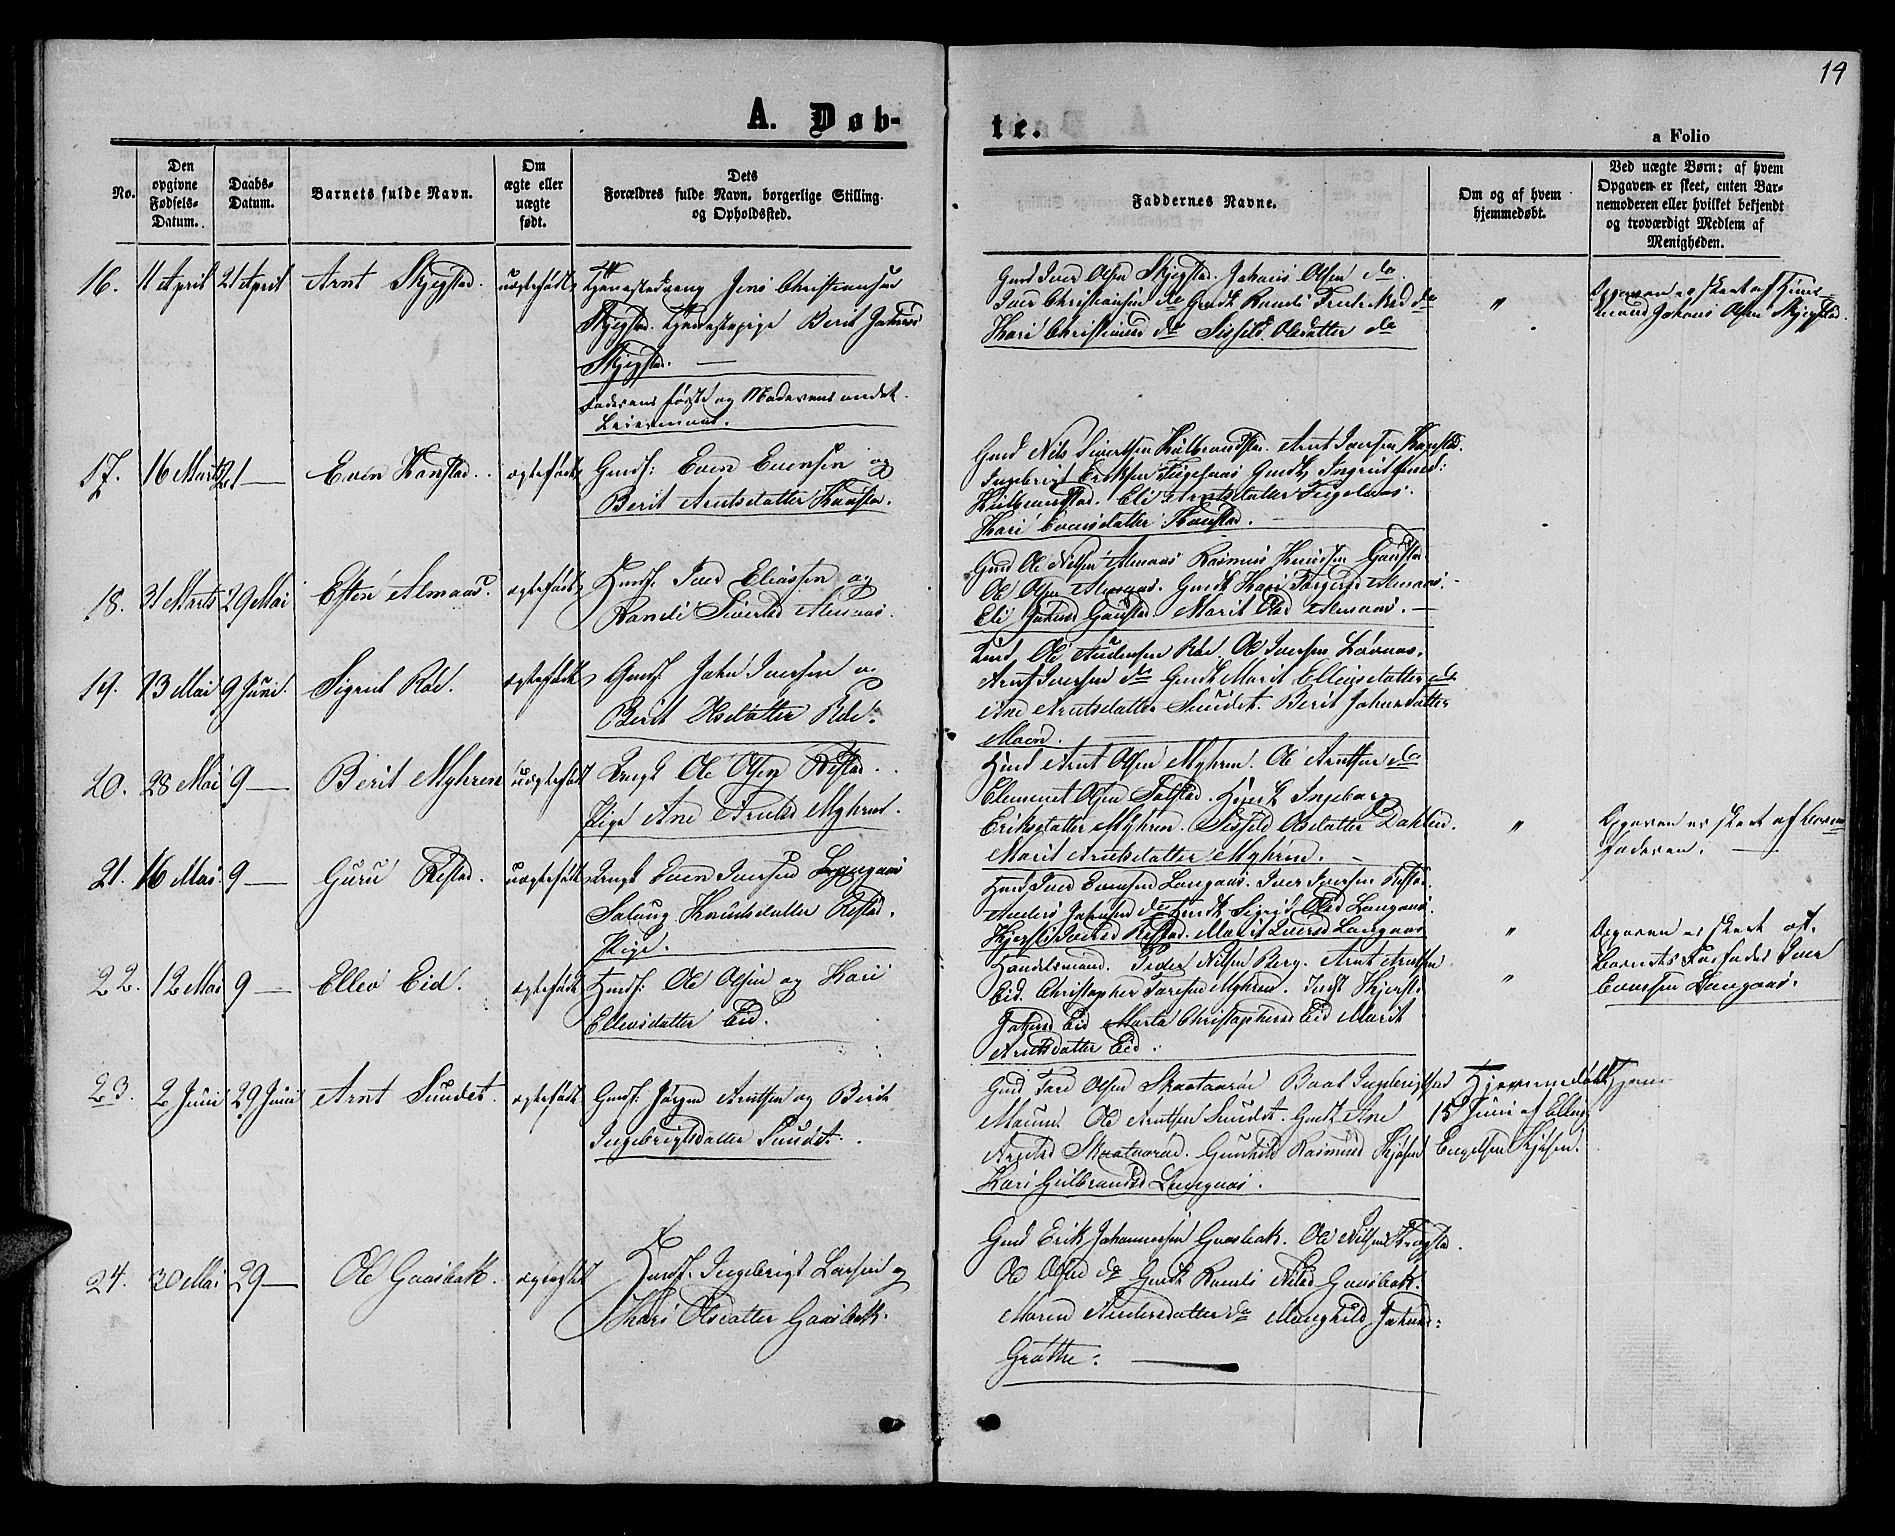 19
A. Døb-
te.
a Folio
No.
Den opgivne Fødsels-Datum.
Daabs-Datum.
Barnets fulde Navn.
Om ægte eller uægte født.
Dets Forældres fulde Navn, borgerlige Stilling og Opholdssted.
Faddernes Navne.
Om og af hvem hjemmedøbt.
Ved uægte Børn: af hvem Opgaven er skeet, enten Barnemoderen eller hvilket bekjendt og troværdigt Medlem af Menigheden.
16. 11 April 21 April Arnt Skjegstad. uægtefødt Jens Christiansen
Skjegstad. Tjenestepige Berit Johnsd
Skjegstad. —
Faderens første og Moderens andet
Leiermaal.
Gmd Iver Olsen Skjegstad. Johans Olsen do
Iver Christiansen do Gmdk Randi Fredriksd do
Kari Christiansd do Sissild Olsdatter do
"
Opgaven er skeet af
Johans Olsen Skjegstad.
17. 16 Marts 21 — Even Kanstad. ægtefødt Gmdf: Even Evensen og
Berit Arntsdatter Kanstad.
Gmd Nils Sivertsen Arnt Iversen Kanstad.
Ingebrigt Eriksen Gmdk Ingrid
Eli Arntsdatter
Kari Evensdatter Kanstad. —
18. 31 Marts 29 Mai Esten Almaas. ægtefødt Hmdf. Iver Eliassen og
Randi Sivertsd Almaas.
Gmd Ole Nilsen Almaas Rasmus Knudsen Gaustad
Ole Olsen Almaas. Gmdk Kari Almaas. —
Eli Johnsd Gaustad Marit Olsd Almaas. —
19. 13 Mai 9 Juni. Sigrid Röe. ægtefødt Gmdf. John Iversen og
Berit Olsdatter Röe.
Gmd Ole Andersen Röe. Ole Iversen
Arnt Iversen do Gmdk Marit Ellingsdatter do
Ane Arntsdatter Sundet. Berit Johnsdatter
Moen.
20. 28 Mai 9 — Berit Myhren uægtefødt Ungk Ole Olsen Restad.
Pige Ane Arntsd Myhren.
Hmd Arnt Olsen Myhren. Ole Arntsen do
Clemmet Olsen Solstad. Hmdk Ingeborg
Eriksdatter Myhren. Sissild Olsdatter Dahlen.
Marit Arntsdatter Myhren. —
"
Opgaven er skeet af Barne
faderen. —
21. 16 Mai 9 — Guru Restad. uægtefødt Ungk Even Iversen Langaas
Solaug Knudsdatter Restad.
Pige.
Hmd Iver Evensen Langaas. Iver Iversen Restad.
Anders Johnsen do Hmdk Sigrid Olsd Langaas.
Kjersti Iversd Restad. Marit Iversd Langaas
"
Opgaven er skeet af
Barnets Farfader Iver
Evensen Langaas.
22. 12 Mai 9 — Ellev Eid. ægtefødt Hmdf. Ole Olsen og Kari
Ellevsdatter Eid.
Handelsmand. Peder Nilsen Berg. Arnt Arntsen
Eid. Christopher Toresen Myhren. Kjersti
Johnsd Eid Marta Christophersd Eid Marit
Arntsdatter Eid.
"
23. 2 Juni 29 Juni Arnt Sundet. ægtefødt Gmdf. Jörgen Arntsen og Berit
Ingebrigtsdatter Sundet.
Gmd Tore Olsen Skaataaröe Ingebrigtsen
Moum. Ole Arntsen Sundet. Gmdk Ane
Arntsd Skaataaröe. Gunhild Rasmusd Kjösen
Kari Gulbrandsd Langaas.
Hjemmedöbt
15 Juni af Elling
Engelsen Kjösen.
24. 30 Mai 29 — Ole Gaasbak. ægtefødt Hmdf. Ingebrigt Larsen og
Kari Olsdatter Gaasbak.
Gmd Erik Johannesen Gaasbak. Ole Nilsen
Ole Olsen do Gmdk Randi Nilsd Gaasbak.
Maren Andersdatter do Magnhild Johnsd
Gröthe. —